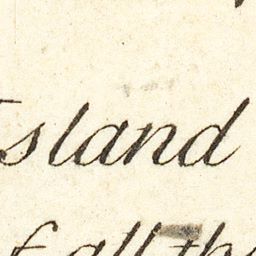 sland
f all th